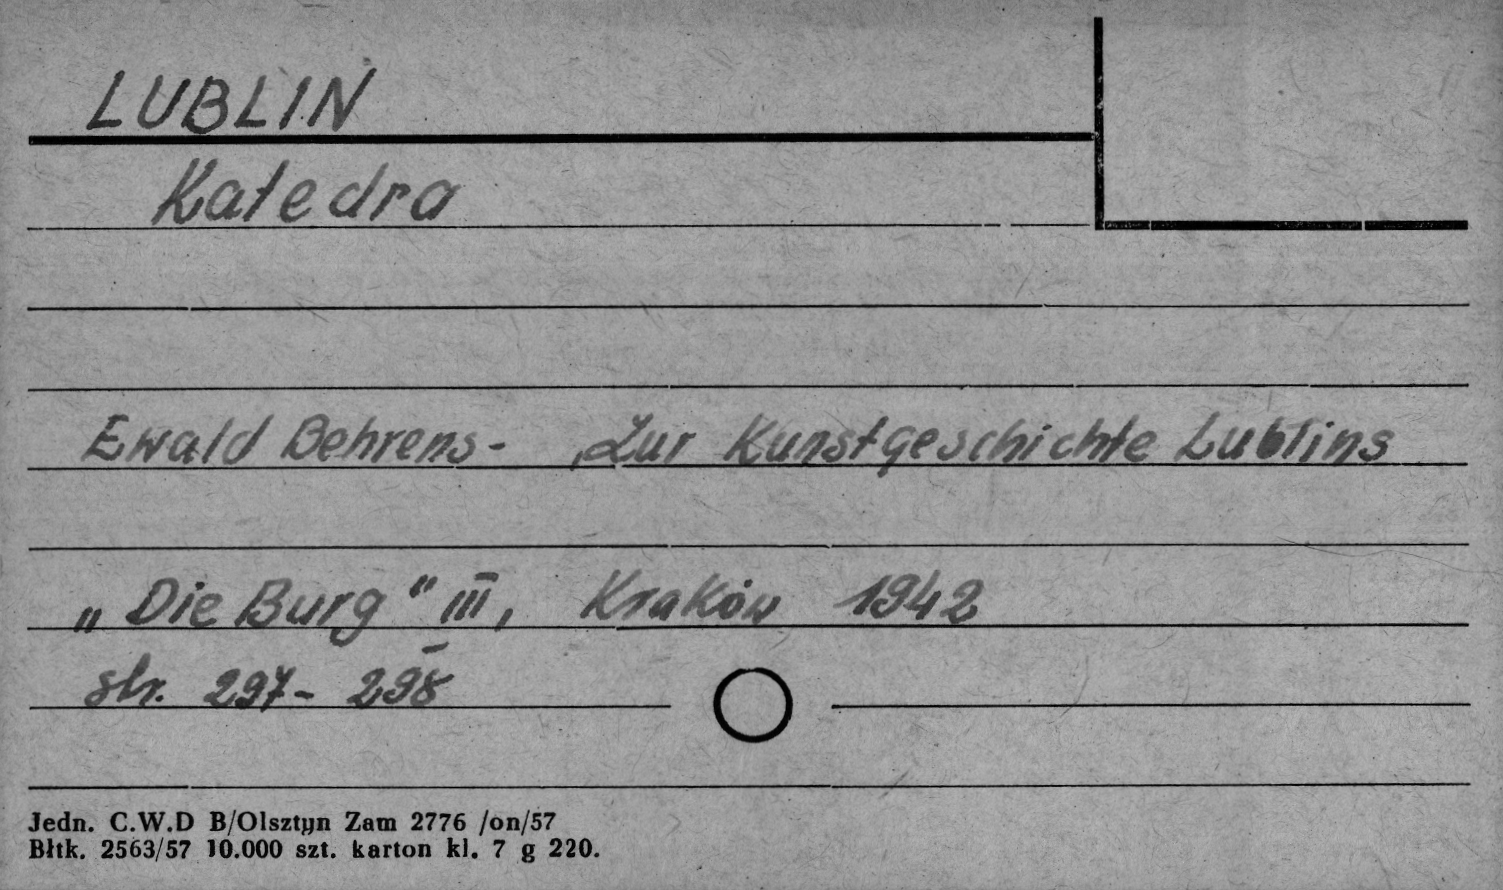 LUBLIN
Katedra
Ewald Behrens - Zur Kunstgeschichte Lublins
„Die Burg" III, Kraków 1942
str. 297 - 298
Jedn. C.W.D B/Olsztyn Zam 2776 /on/57
Błtk. 2563/57 10.000 szt. karton kl. 7 g 220.